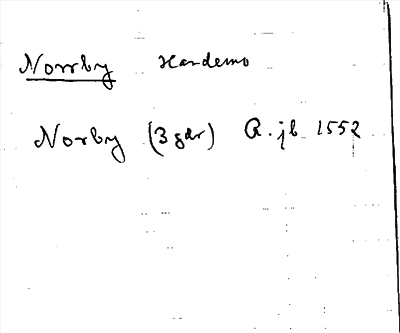 Norrby Hardemo
Norby (3 gdr) R. jb 1552